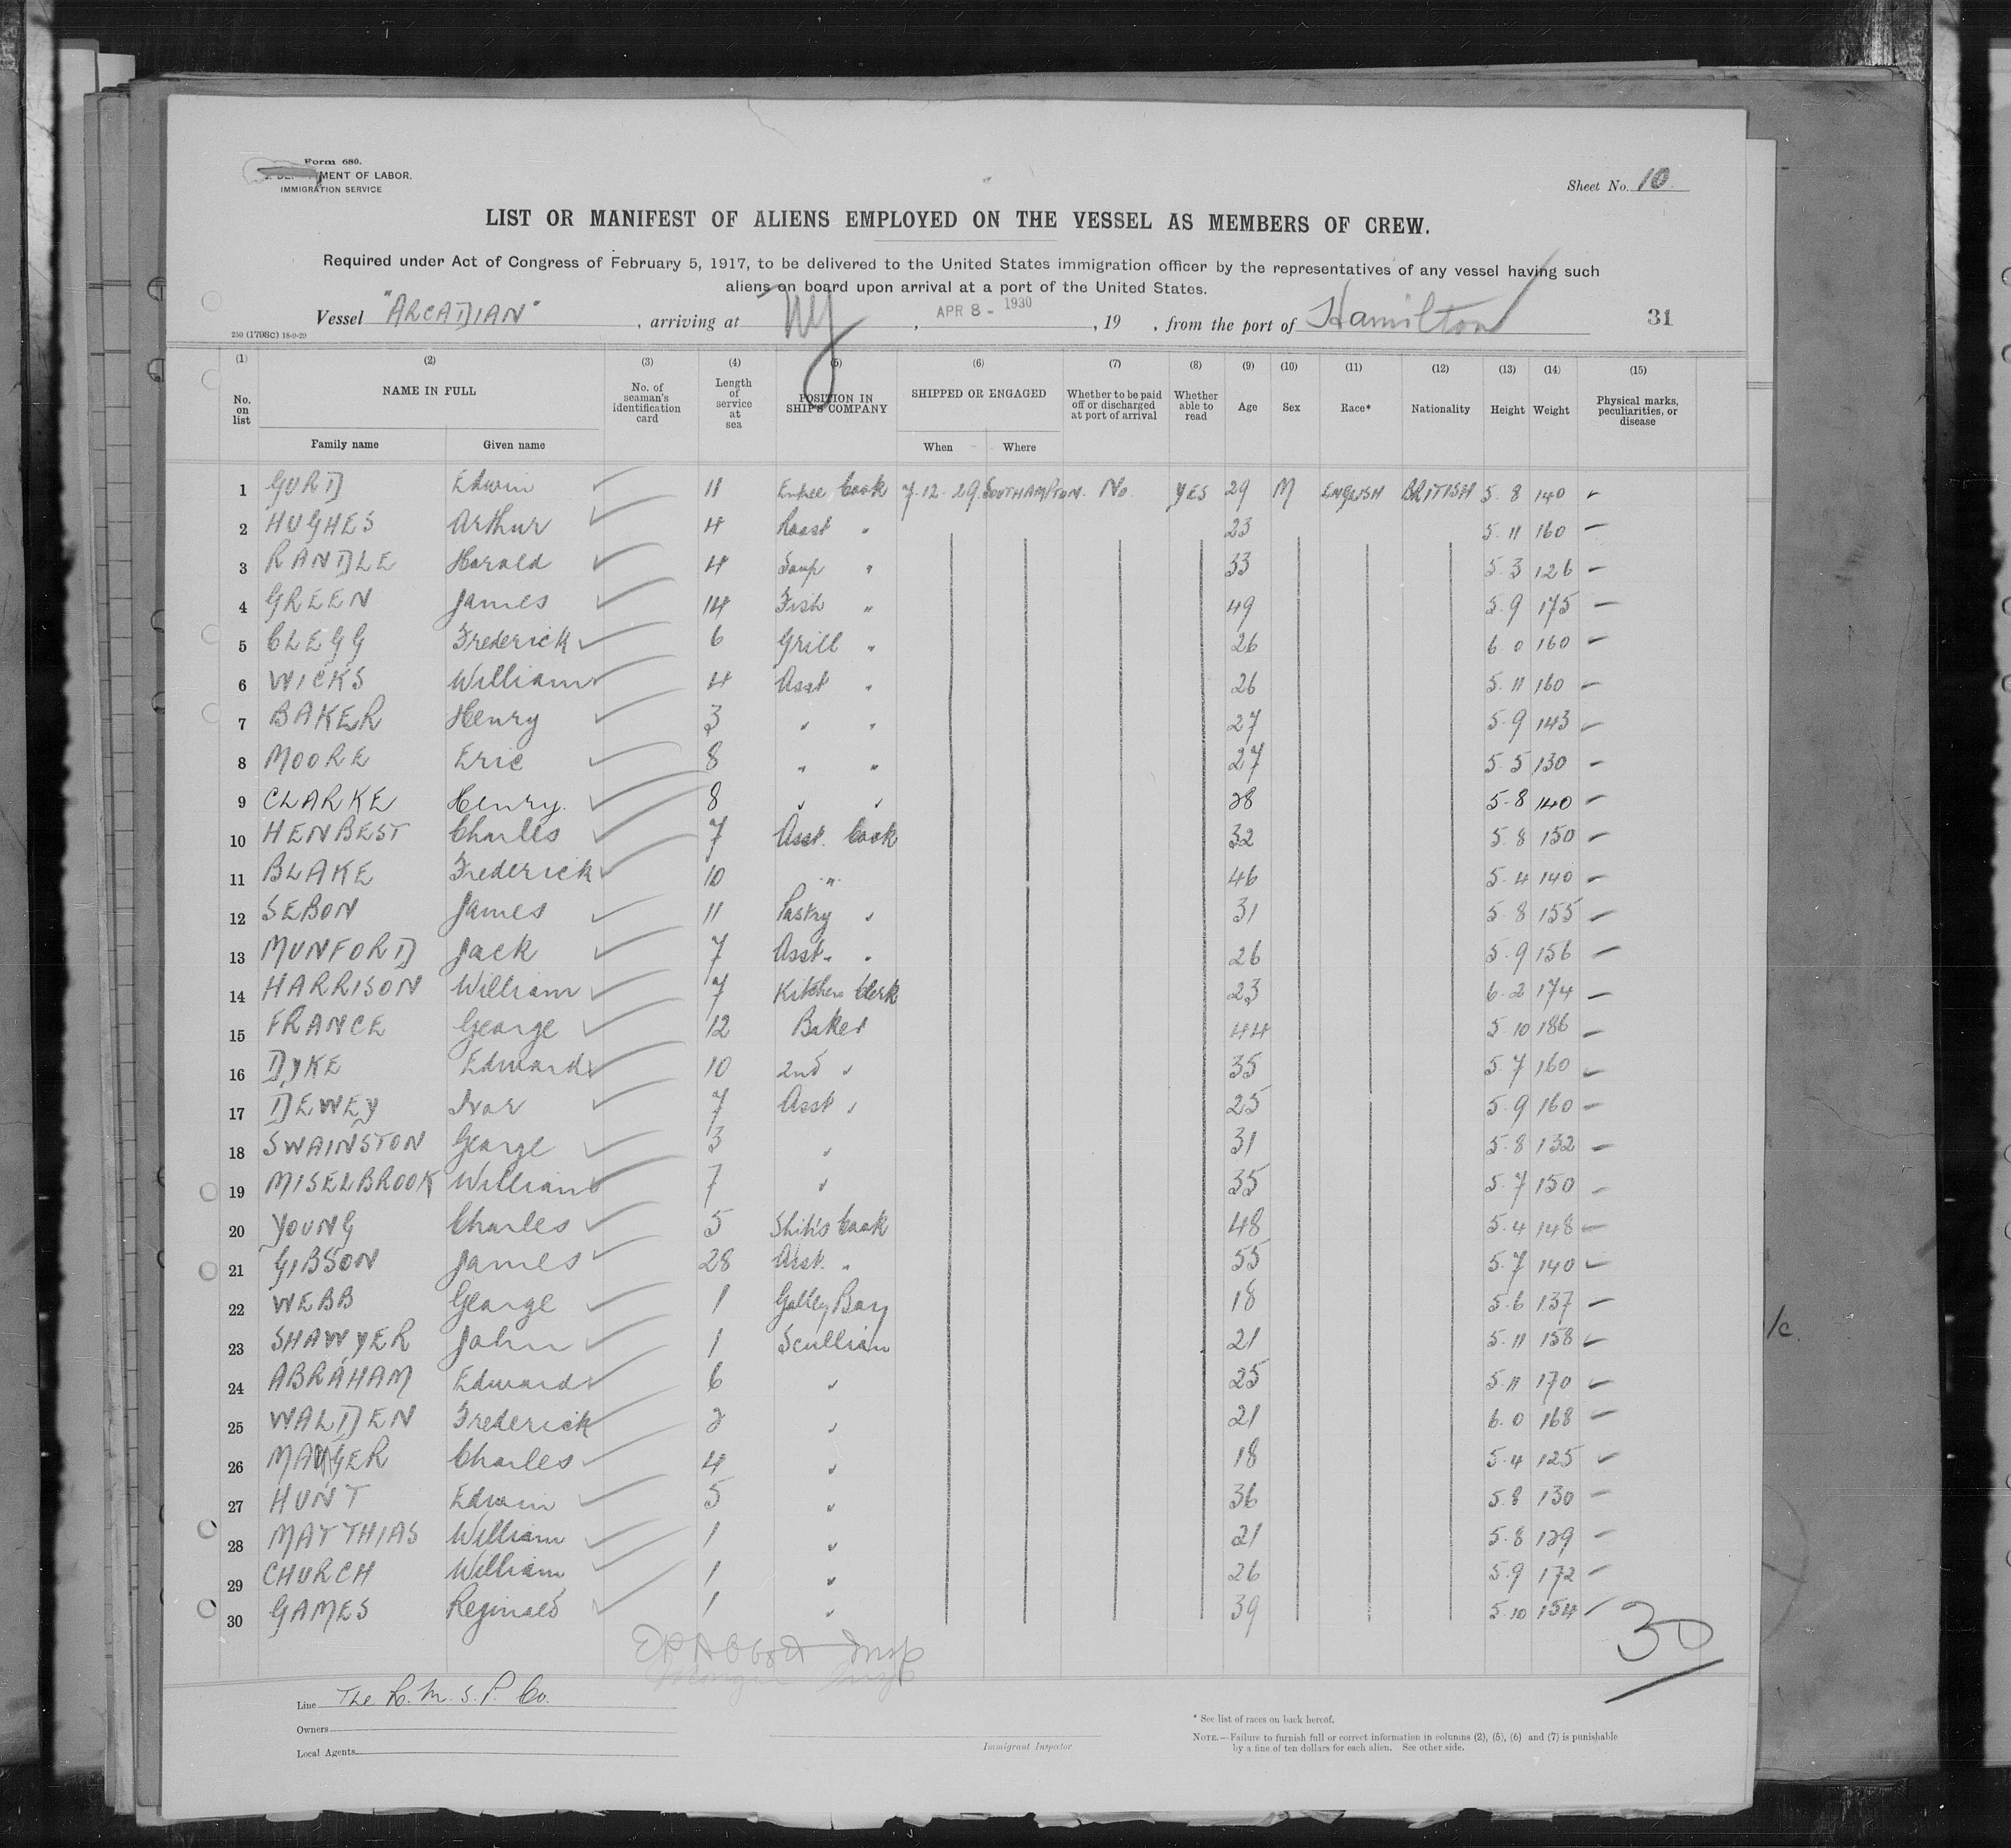 Form 680.
MENT OF LABOR.
IMMIGRATION SERVICE
Sheet No. 10.
LIST OR MANIFEST OF ALIENS EMPLOYED ON THE VESSEL AS MEMBERS OF CREW.
Required under Act of Congress of February 5, 1917, to be delivered to the United States immigration officer by the representatives of any vessel having such
aliens on board upon arrival at a port of the United States.
Vessel "ARCADIAN", arriving at NY, APR 8 - 1930, 19 , from the port of Hamilton 31
250 (1798C) 18-9-29
(1) (2) (3) (4) (5) (6) (7) (8) (9) (10) (11) (12) (13) (14) (15)
No. on list NAME IN FULL No. of seaman's identification card Length of service at sea POSITION IN SHIP'S COMPANY SHIPPED OR ENGAGED Whether to be paid off or discharged at port of arrival Whether able to read Age Sex Race* Nationality Height Weight Physical marks, peculiarities, or disease
Family name Given name When Where
1 GURD Edwin 11 Entree Cook 7.12.29. SOUTHAMPTON. No. YES 29 M ENGLISH BRITISH 5 8 140
2 HUGHES Arthur 4 Roast " 23 5. 11 160
3 RANDLE Harold 4 Soup " 33 5. 3 126
4 GREEN James 14 Fish " 49 5. 9 175
5 CLEGG Frederick 6 Grill " 26 6 0 160
6 WICKS William 4 Asst " 26 5. 11 160
7 BAKER Henry 3 " " 27 5. 9 143
8 MOORE Eric 8 " " 27 5 5 130
9 CLARKE Henry. 8 " " 28 5. 8 140
10 HENBEST Charles 7 Asst. Cook 32 5. 8 150
11 BLAKE Frederick 10 " 46 5. 4 140
12 SEBON James 11 Pastry " 31 5 8 155
13 MUNFORD Jack 7 Asst. " 26 5. 9 156
14 HARRISON William 7 Kitchen Clerk 23 6. 2 174
15 FRANCE George 12 Baker 44 5 10 186
16 DYKE Edward 10 2nd " 35 5. 7 160
17 DEWEY Ivor 7 Asst " 25 5. 9 160
18 SWAINSTON George 3 " 31 5. 8 132
19 MISELBROOK William 7 " 35 5. 7 150
20 YOUNG Charles 5 Ship's Cook 48 5. 4 148
21 GIBSON James 28 Asst. " 55 5. 7 140
22 WEBB George 1 Galley Boy 18 5. 6 137
23 SHAWYER John 1 Scullian 21 5. 11 158
24 ABRAHAM Edward 6 " 25 5. 11 170
25 WALDEN Frederick 2 " 21 6. 0 168
26 MAUGER Charles 4 " 18 5. 4 125
27 HUNT Edwin 5 " 36 5. 8 130
28 MATTHIAS William 1 " 21 5. 8 129
29 CHURCH William 1 " 26 5. 9 172
30 GAMES Reginald 1 " 39 5. 10 154
30
Insp
Line The R. M. S. P. Co.
Owners
Local Agents
Immigrant Inspector
* See list of races on back hereof.
NOTE.—Failure to furnish full or correct information in columns (2), (5), (6) and (7) is punishable
by a fine of ten dollars for each alien. See other side.
/c.